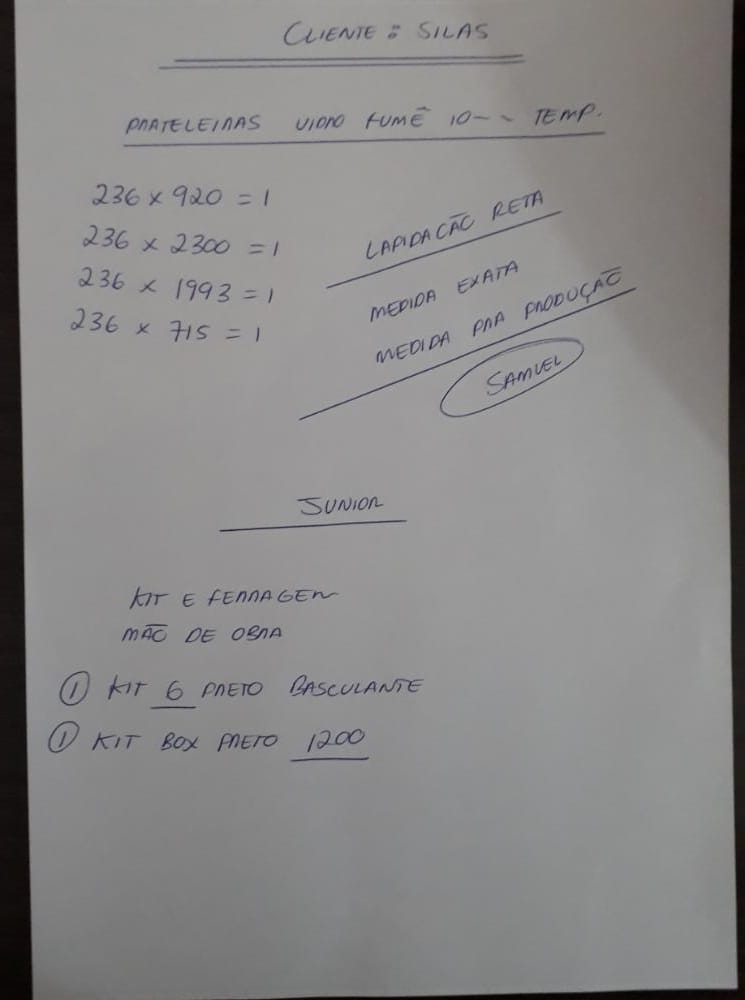 CLIENTE: SILAS
PRATELEIRAS VIDRO FUMÊ 10mm TEMP.
236 x 920 = 1
236 x 2300 = 1
236 x 1993 = 1
236 x 715 = 1
LAPIDACÃO RETA
MEDIDA EXATA
MEDIDA PRA PRODUÇÃO
SAMUEL
JUNIOR
KIT E FERRAGEM
MÃO DE OBRA
① KIT 6 PRETO BASCULANTE
① KIT BOX PRETO 1200